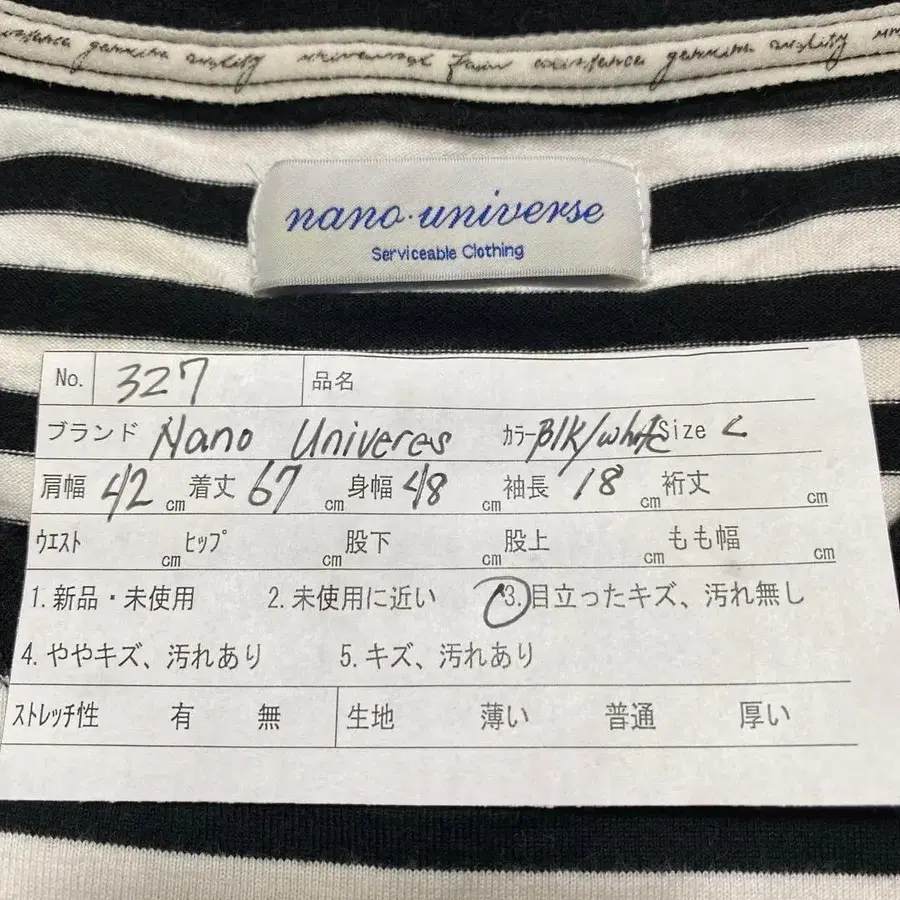 genuine quality universal favor existence genuine quality
nano·universe
Serviceable Clothing
No. 327 品名
ブランド Nano Univeres カラー Blk/white Size L
肩幅 42 cm 着丈 67 cm 身幅 48 cm 袖長 18 cm 裄丈 cm
ウエスト cm ヒップ cm 股下 cm 股上 cm もも幅 cm
1. 新品・未使用 2. 未使用に近い 3. 目立ったキズ、汚れ無し
4. ややキズ、汚れあり 5. キズ、汚れあり
ストレッチ性 有 無 生地 薄い 普通 厚い